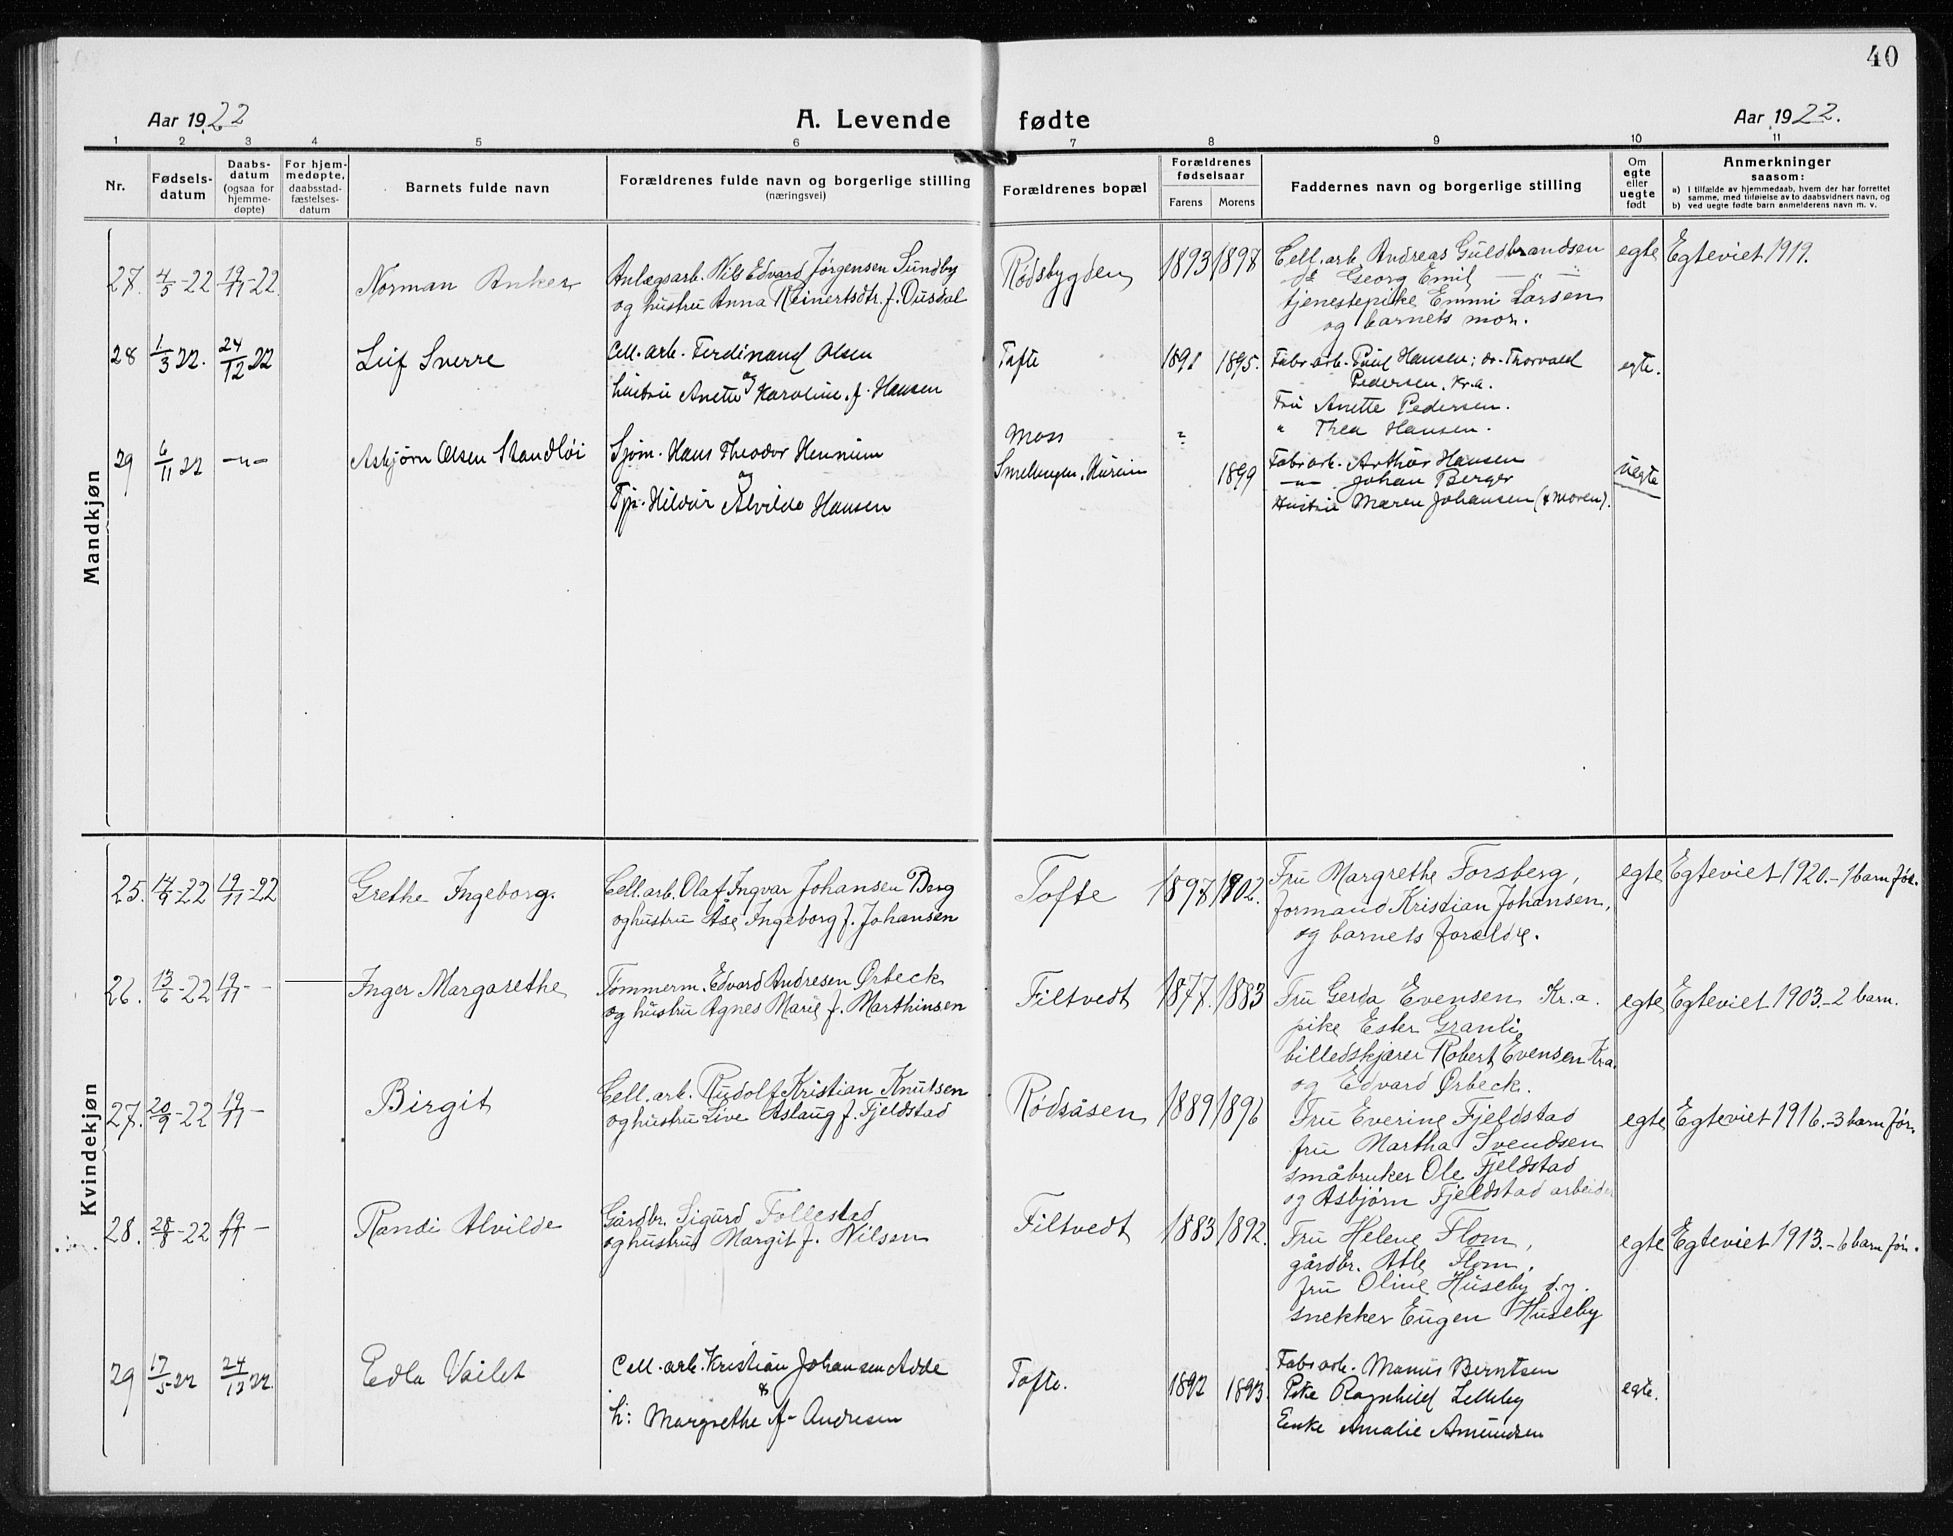 40
Aar 1922 A. Levende fødte Aar 1922.
1 2 3 4 5 6 7 8 9 10 11
Nr. | Fødselsdatum | Daabsdatum (ogsaa for hjemmedøpte) | For hjemmedøpte, daabsstadfæstelsesdatum | Barnets fulde navn | Forældrenes fulde navn og borgerlige stilling (næringsvei) | Forældrenes bopæl | Forældrenes fødselsaar Farens Morens | Faddernes navn og borgerlige stilling | Om egte eller uegte født | Anmerkninger saasom: a) I tilfælde av hjemmedaab, hvem der har forrettet samme, med tilføielse av to daabsvidners navn, og b) ved uegte fødte barn anmelderens navn m. v.
Mandkjøn
27. 4/5-22 19/11-22 Norman Anker Anlægsarb. Nils Edvard Jørgensen Sundby Rødsbygden 1893 1898 Cell. arb. Andreas Guldbrandsen egte Egteviet 1919.
og hustru Anna Reinertsdtr. f. Dusdal do Georg Emil — " —
tjenestepike Emmi Larsen
og barnets mor.
28 1/3 22. 24/12 22 Leif Sverre Cell. arb. Ferdinand Olsen Tofte 1891 1895. Fabr. arb. Paul Hansen; do. Thorvald egte.
og Pedersen, Kr.a.
hustru Anette Karoline f. Hansen Fru Anette Pedersen.
" Thea Hansen.
29 6/11 22 —"— Asbjørn Olsen Standløi Sjøm. Hans Theodor Hennum Moss ? Fabr. arb. Arthur Hansen uegte
og Smelungen, Hurum 1899 —"— Johan Berger
Tjp. Hildur Alvilde Hansen Hustru Maren Johansen (& moren).
Kvindekjøn
25. 14/9-22 19/11-22 Grethe Ingeborg. Cell. arb. Olaf Ingvar Johansen Berg Tofte 1897 1902. Fru Margrethe Forsberg, egte Egteviet 1920. - 1 barn før.
og hustru Åse Ingeborg f. Johansen formand Kristian Johansen,
og barnets forældre.
26. 13/6-22 19/11 - — Inger Margarethe Tømmerm. Edvard Andresen Ørbeck Filtvedt 1877. 1883 Fru Gerda Evensen Kr.a. egte Egteviet 1903. - 2 barn.
og hustru Agnes Marie f. Marthinsen pike Ester Granli
billedskjærer Robert Evensen Kra.
og Edvard Ørbeck.
27. 20/9-22 19/11 - Birgit Cell. arb. Rudolf Kristian Knutsen Rødsåsen 1889 1896 Fru Everine Fjeldstad egte Egteviet 1916. - 3 barn før.
og hustru Live Aslaug f. Fjeldstad fru Martha Svendsen
småbruker Ole Fjeldstad
og Asbjørn Fjeldstad arbeider
28. 28/8-22 19/11 - Randi Alvilde Gårdbr. Sigurd Follestad Filtvedt 1883 1892. Fru Helene Flom, egte Egteviet 1913. - 6 barn før.
og hustru Margit f. Nilsen gårdbr. Atle Flom,
fru Oline Huseby d.y.
snekker Eugen Huseby
29 17/5 22 24/12 22. Edla Vailet Cell. arb. Kristian Johansen Adde Tofte. 1892 1893. Fabr. arb. Manus Berntsen egte.
& Pike Ragnhild Lilleby
h: Margrethe f. Andresen Enke Amalie Amundsen